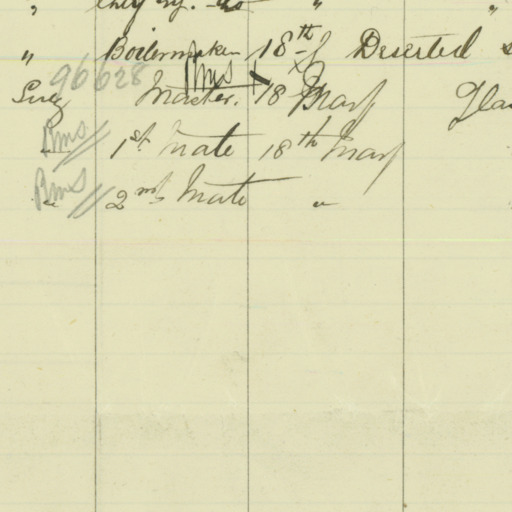 " Boilermaker 18th Deserted
96628 Rms
Master. 18 May
Rms " 1st Mate 18th May
Rms " 2nd Mate "